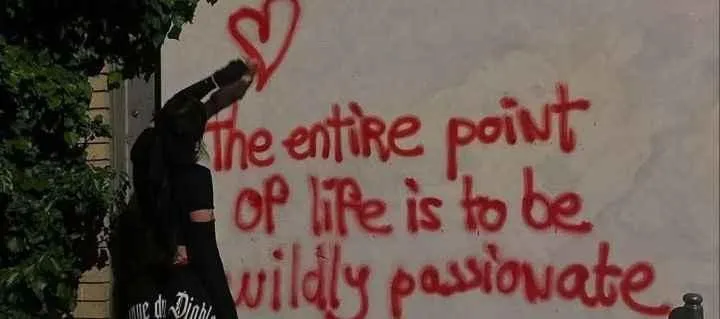 the entire point
of life is to be
wildly passionate
Diablo